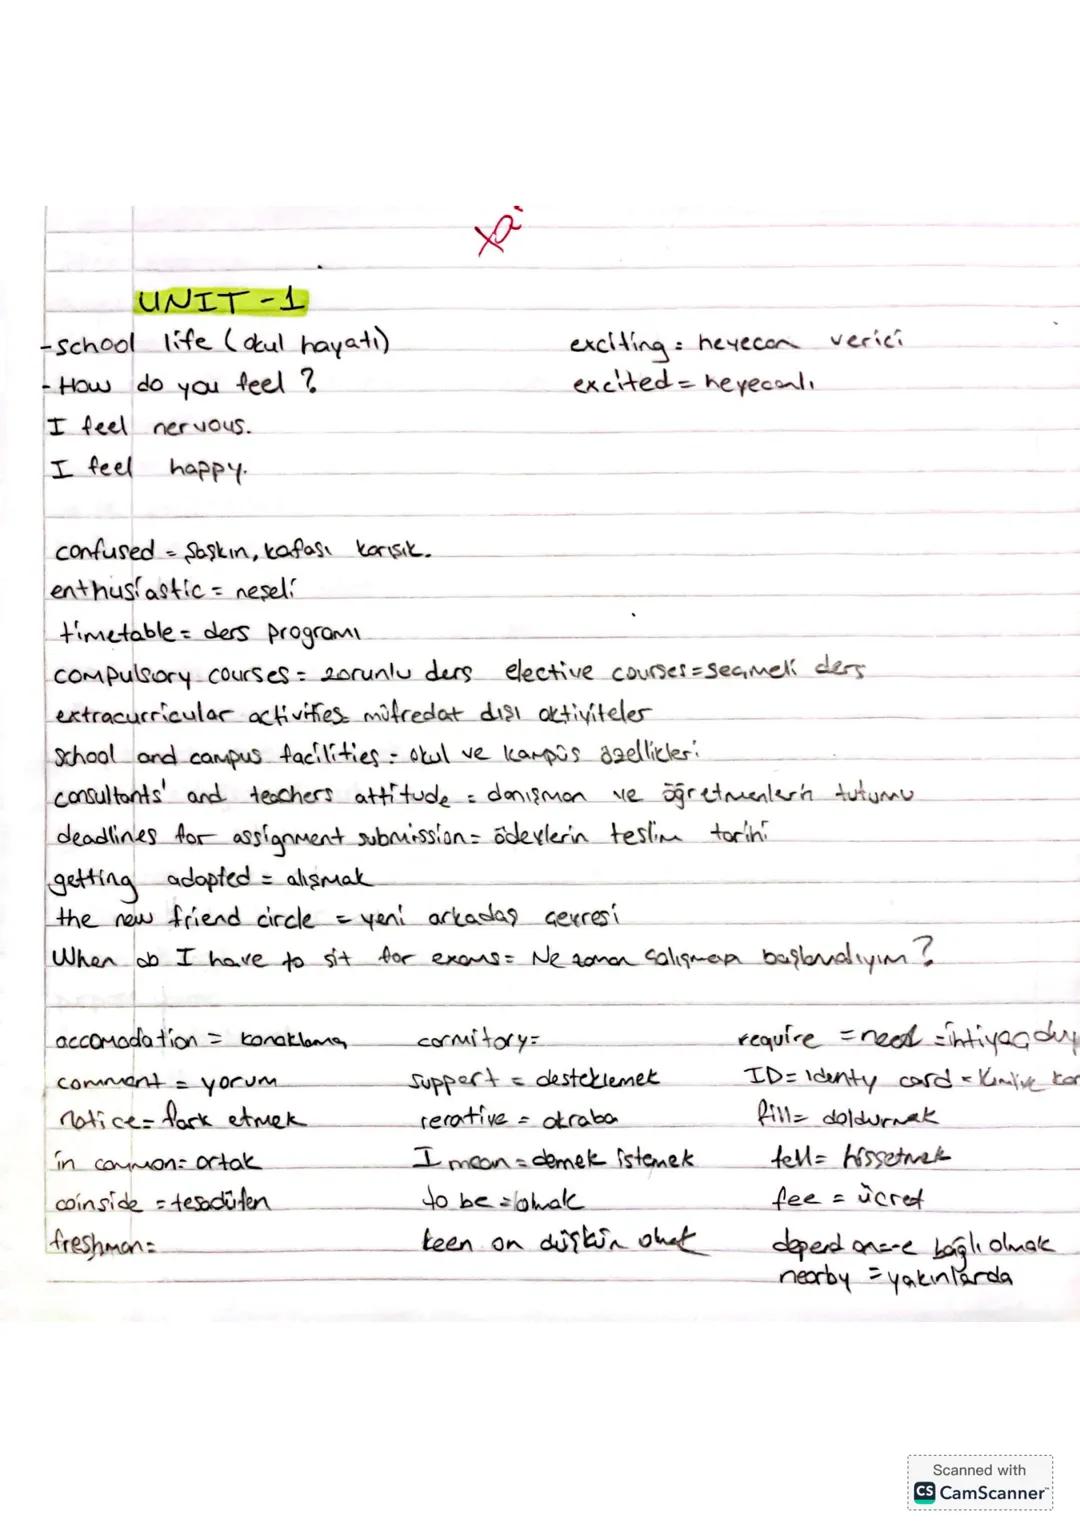 UNIT-1
-school life (okul hayatı)
exciting = heyecan verici
- How do you feel ?
excited = heyecanlı
I feel nervous.
I feel happy.
confused = şaşkın, kafası karışık.
enthusiastic = neşeli
timetable = ders programı
compulsory courses = zorunlu ders elective courses = seçmeli ders
extracurricular activities = müfredat dışı aktiviteler
school and campus facilities = okul ve kampüs özellikleri
consultants' and teachers attitude = danışman ve öğretmenlerin tutumu
deadlines for assignment submission = ödevlerin teslim tarihi
getting adapted = alışmak
the new friend circle = yeni arkadaş çevresi
When do I have to sit for exams = Ne zaman çalışmaya başlamalıyım ?
accomodation = konaklama cormitory= require = need = ihtiyaç duy
comment = yorum support = desteklemek ID= Identy card = Kimlik kar
notice= fark etmek rerative = akraba fill= doldurmak
in common= ortak I mean = demek istemek fell= hissetmek
coinside = tesadüfen to be = olmak fee = ücret
freshman= keen on düşkün olmak depend on=-e bağlı olmak
nearby = yakınlarda
Scanned with
CS CamScanner